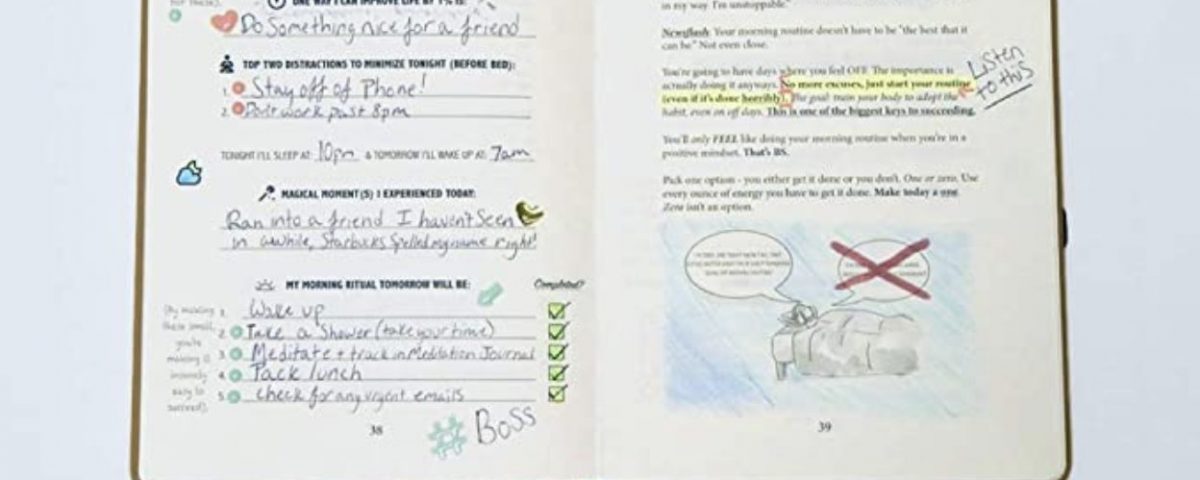 ONE WAY I CAN IMPROVE LIFE BY 1% IS:
Do Something nice for a friend
TOP TWO DISTRACTIONS TO MINIMIZE TONIGHT (BEFORE BED):
1. Stay off of Phone!
2. Don't work past 8pm
TONIGHT I'LL SLEEP AT: 10pm & TOMORROW I'LL WAKE UP AT: 7am
MAGICAL MOMENT(S) I EXPERIENCED TODAY:
Ran into a friend I haven't Seen
in awhile, Starbucks Spelled my name right!
MY MORNING RITUAL TOMORROW WILL BE: Completed?
(By making
these small,
you're
making it
insanely
easy to
succeed).
1. Wake up
2. Take a Shower (take your time)
3. Meditate + track in Meditation Journal
4. Pack lunch
5. check for any urgent emails
# Boss
38
in my way. I'm unstoppable."
Newsflash: Your morning routine doesn't have to be "the best that it
can be." Not even close.
You're going to have days where you feel OFF. The importance is
actually doing it anyways. No more excuses, just start your routine
(even if it's done horribly). The goal: train your body to adopt the
habit, even on off days. This is one of the biggest keys to succeeding.
Listen
to this
You'll only FEEL like doing your morning routine when you're in a
positive mindset. That's BS.
Pick one option - you either get it done or you don't. One or zero. Use
every ounce of energy you have to get it done. Make today a one.
Zero isn't an option.
39